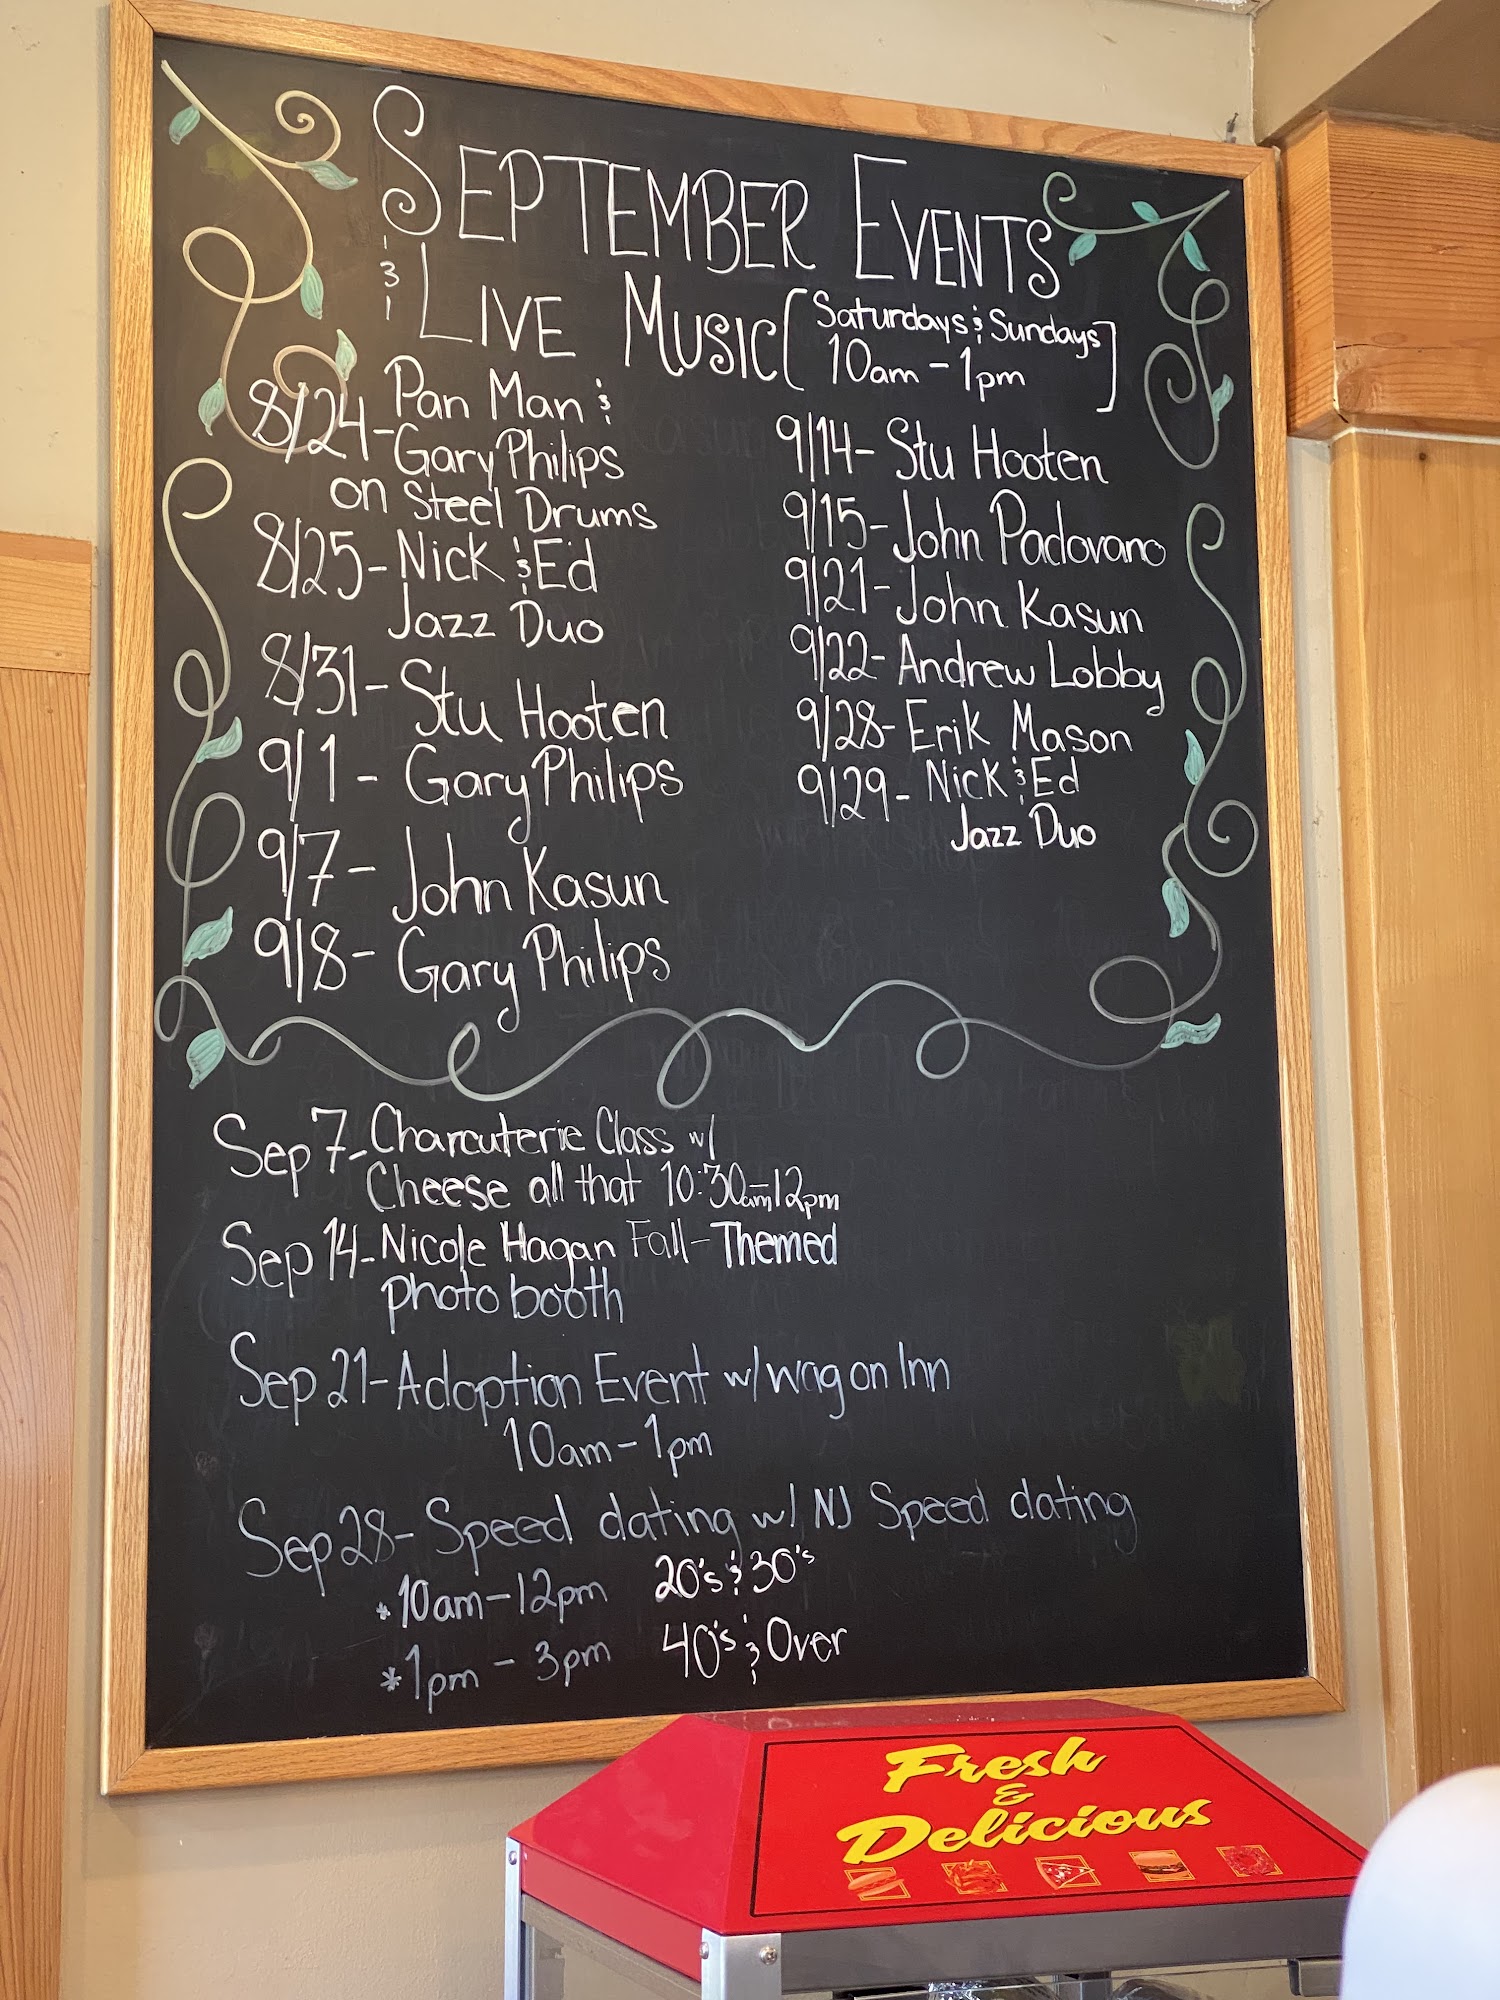 SEPTEMBER EVENTS
& LIVE MUSIC [Saturdays & Sundays
10am - 1pm]
8/24 - Pan Man &
Gary Philips
on Steel Drums
8/25 - Nick & Ed
Jazz Duo
8/31 - Stu Hooten
9/1 - Gary Philips
9/7 - John Kasun
9/8 - Gary Philips
9/14 - Stu Hooten
9/15 - John Padovano
9/21 - John Kasun
9/22 - Andrew Lobby
9/28 - Erik Mason
9/29 - Nick & Ed
Jazz Duo
Sep 7 - Charcuterie Class w/
Cheese all that 10:30am-12pm
Sep 14 - Nicole Hagan Fall-Themed
photo booth
Sep 21 - Adoption Event w/ wagon Inn
10am - 1pm
Sep 28 - Speed dating w/ NJ Speed dating
*10am - 12pm 20's & 30's
*1pm - 3pm 40's & Over
Fresh
&
Delicious